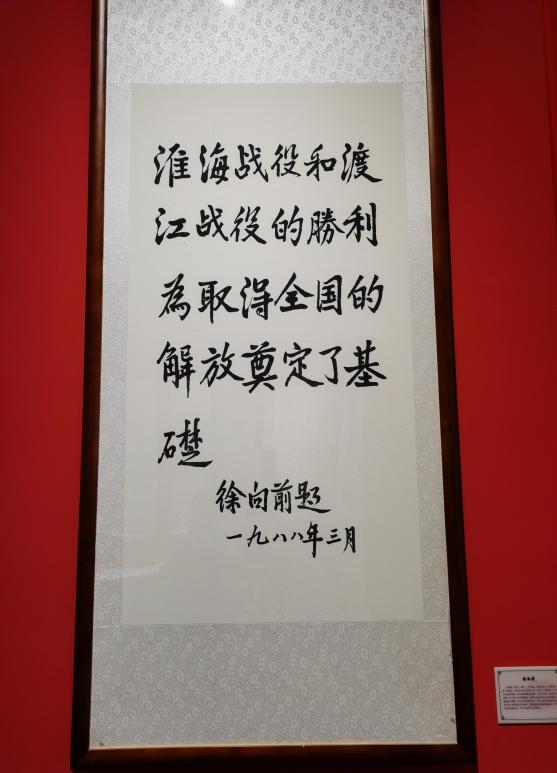 淮海战役和渡
江战役的勝利
為取得全国的
解放奠定了基
礎
徐向前题
一九八八年三月
徐向前